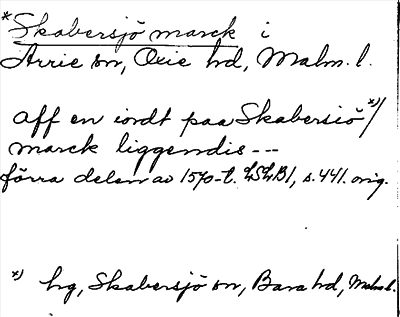 *Skabersjö marck i
Arrie sn, Oxie hd, Malm. l.
aff en iordt paa Skabersiö *)/
marck liggendis ---
förra delen av 1570-t. LSLB1, s. 441. orig.
*) hg, Skabersjö sn, Bara hd, Malm l.